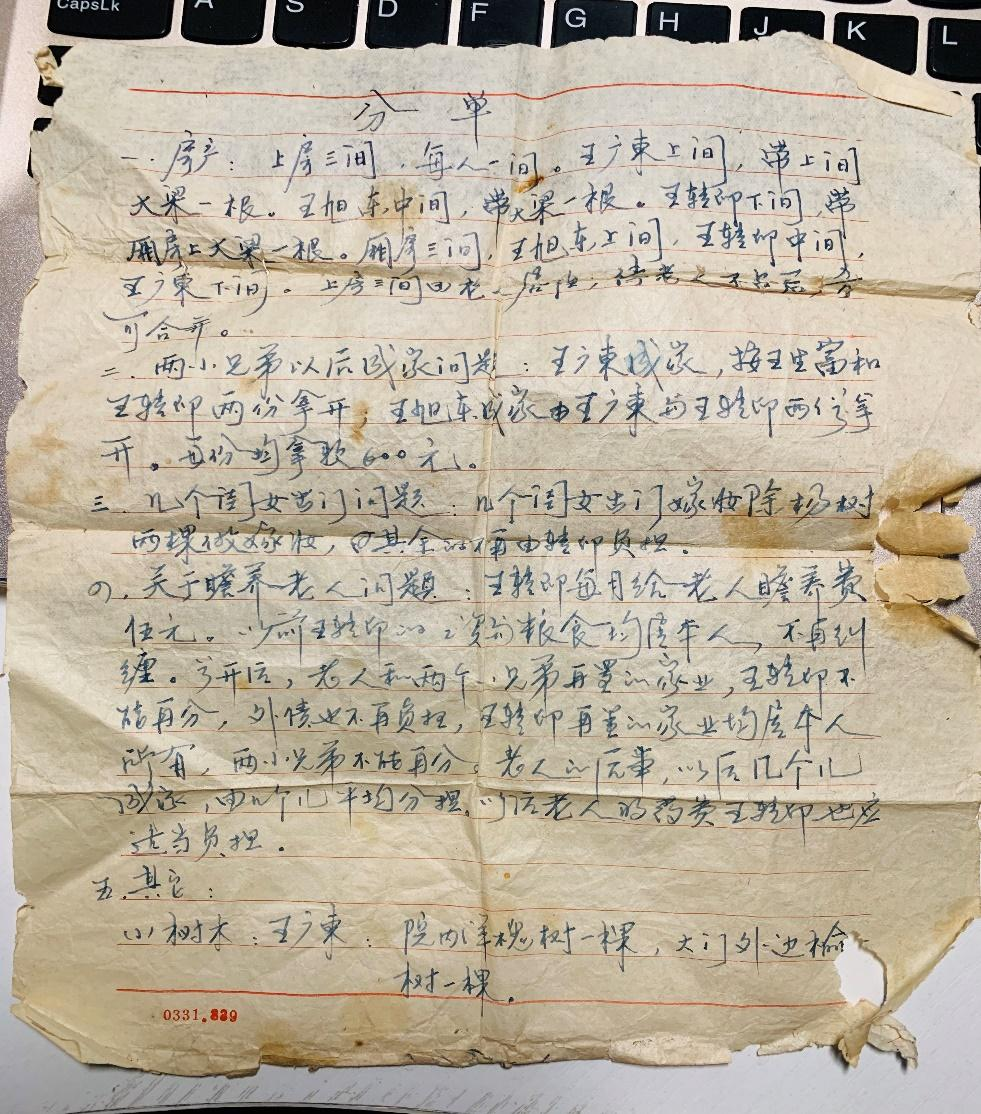 CapsLk A S D F G H J K L
分单
一.房产：上房三间，每人一间。王广東上间，带上间
大梁一根。王旭东中间，带大梁一根。王转印下间，带
厢房上大梁一根。厢房三间，王旭东上间，王转印中间，
王广東下间。上房三间由老人居住，待老人不在后，方
可合开。
二.两小兄弟以后成家问题：王广東成家，按王生富和
王转印两份拿开；王旭东成家由王广東与王转印两份拿
开。每份均拿款600元。
三.几个闺女出门问题：几个闺女出门嫁妆除杨树
两棵做嫁妆，其余的不再由转印负担.
四.关于瞻养老人问题：王转印每月给老人瞻养费
伍元。以前王转印的工资和粮食均属本人，不再纠
缠。分开后，老人和两个小兄弟再置的家业，王转印不
能再分，外债也不再负担，王转印再置的家业均属个人
所有，两小兄弟不能再分。老人的后事，以后几个儿
成家，由几个儿平均分担.以后老人的药费王转印也应
适当负担.
五.其它：
(1)树木：王广東：院内洋槐树一棵，大门外边榆
树一棵.
0331.839